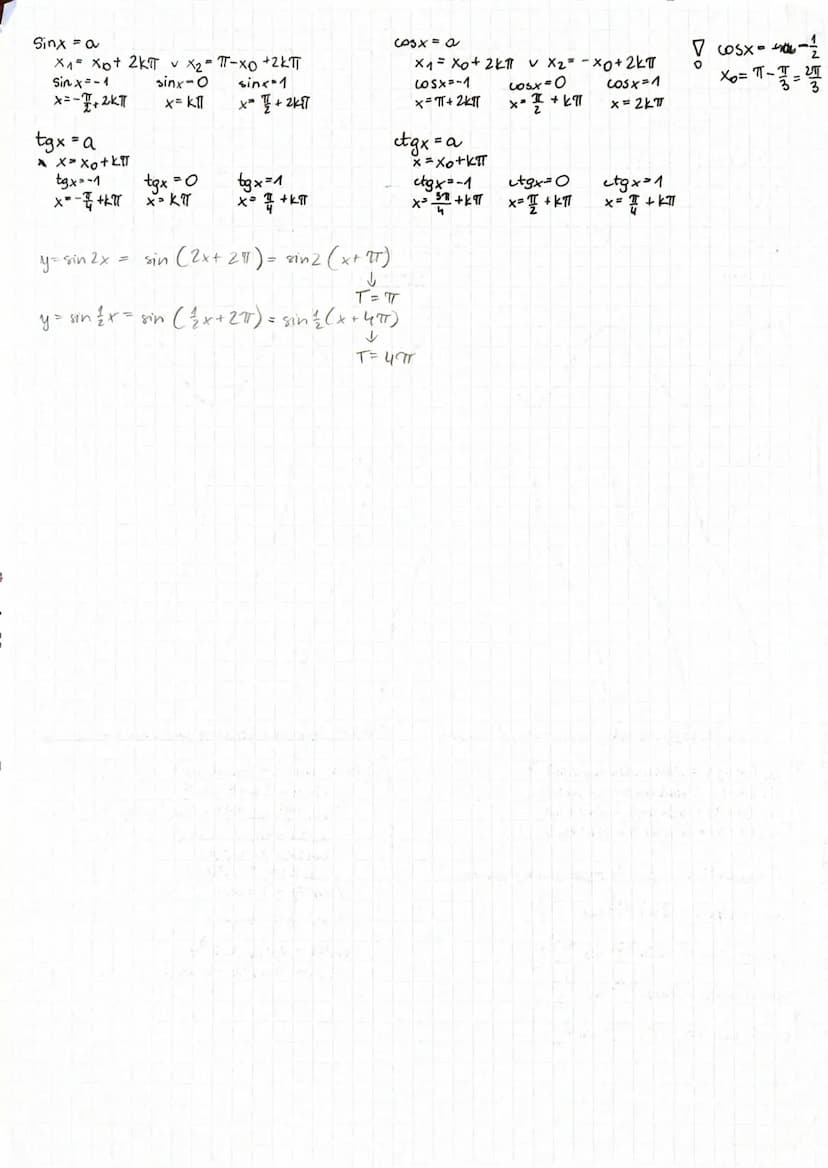 sinx = a
x₁ = x₀ + 2kπ ∨ x₂ = π-x₀ +2kπ
sinx=-1 sinx=0 sinx=1
x=-π/2+2kπ x=kπ x=π/2+2kπ
cosx = a
x₁ = x₀ + 2kπ ∨ x₂ = -x₀+2kπ
cosx=-1 cosx=0 cosx=1
x=π+2kπ x=π/2+kπ x=2kπ
! cosx = -1/2
x₀= π-π/3=2π/3
tgx = a
x=x₀+kπ
tgx=-1 tgx=0 tgx=1
x=-π/4+kπ x=kπ x=π/4+kπ
ctgx=a
x=x₀+kπ
ctgx=-1 ctgx=0 ctgx=1
x=3π/4+kπ x=π/2+kπ x=π/4+kπ
y=sin2x = sin(2x+2π)= sin2(x+π)
↓
T=π
y=sin1/2x=sin(1/2x+2π)=sin1/2(x+4π)
↓
T=4π